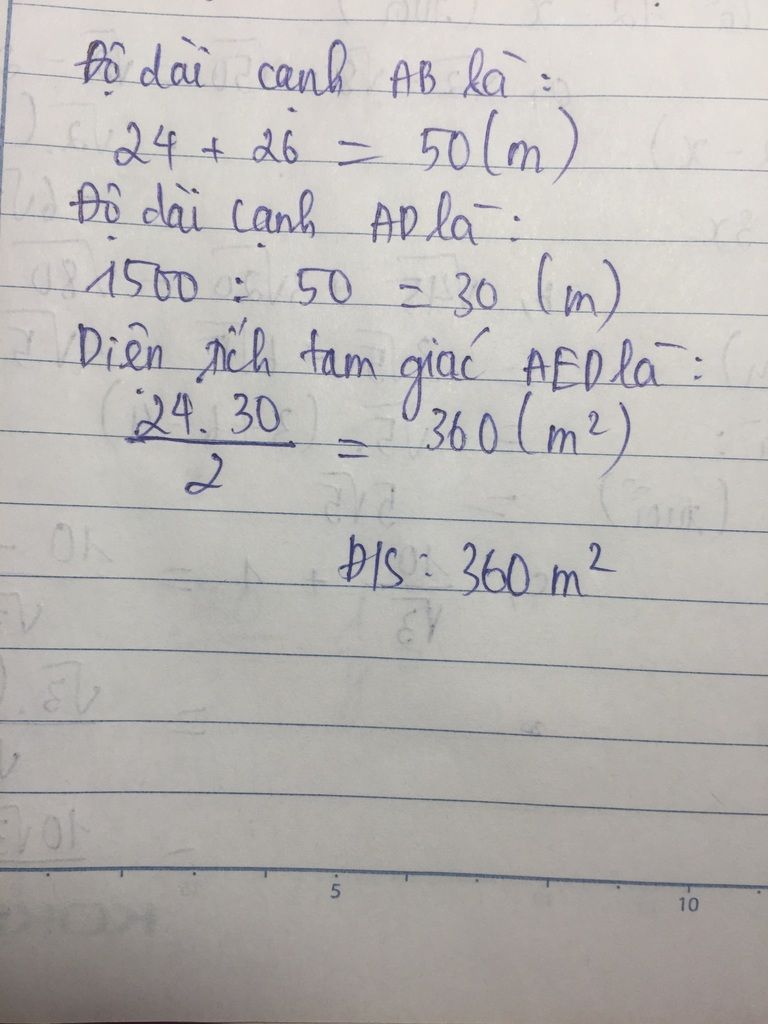 Độ dài cạnh AB là:
24 + 26 = 50 (m)
Độ dài cạnh AD là:
1500 : 50 = 30 (m)
Diện tích tam giác AED là:
24.30
2
= 360 (m²)
Đ/S: 360 m²
5
10